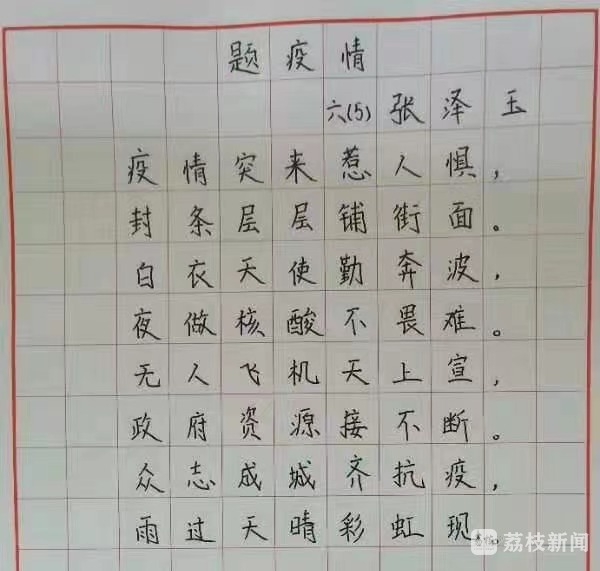 题疫情
六(5) 张泽玉
疫情突来惹人惧，
封条层层铺街面。
白衣天使勤奔波，
夜做核酸不畏难。
无人飞机天上宣，
政府资源接不断。
众志成城齐抗疫，
雨过天晴彩虹现。
荔枝新闻